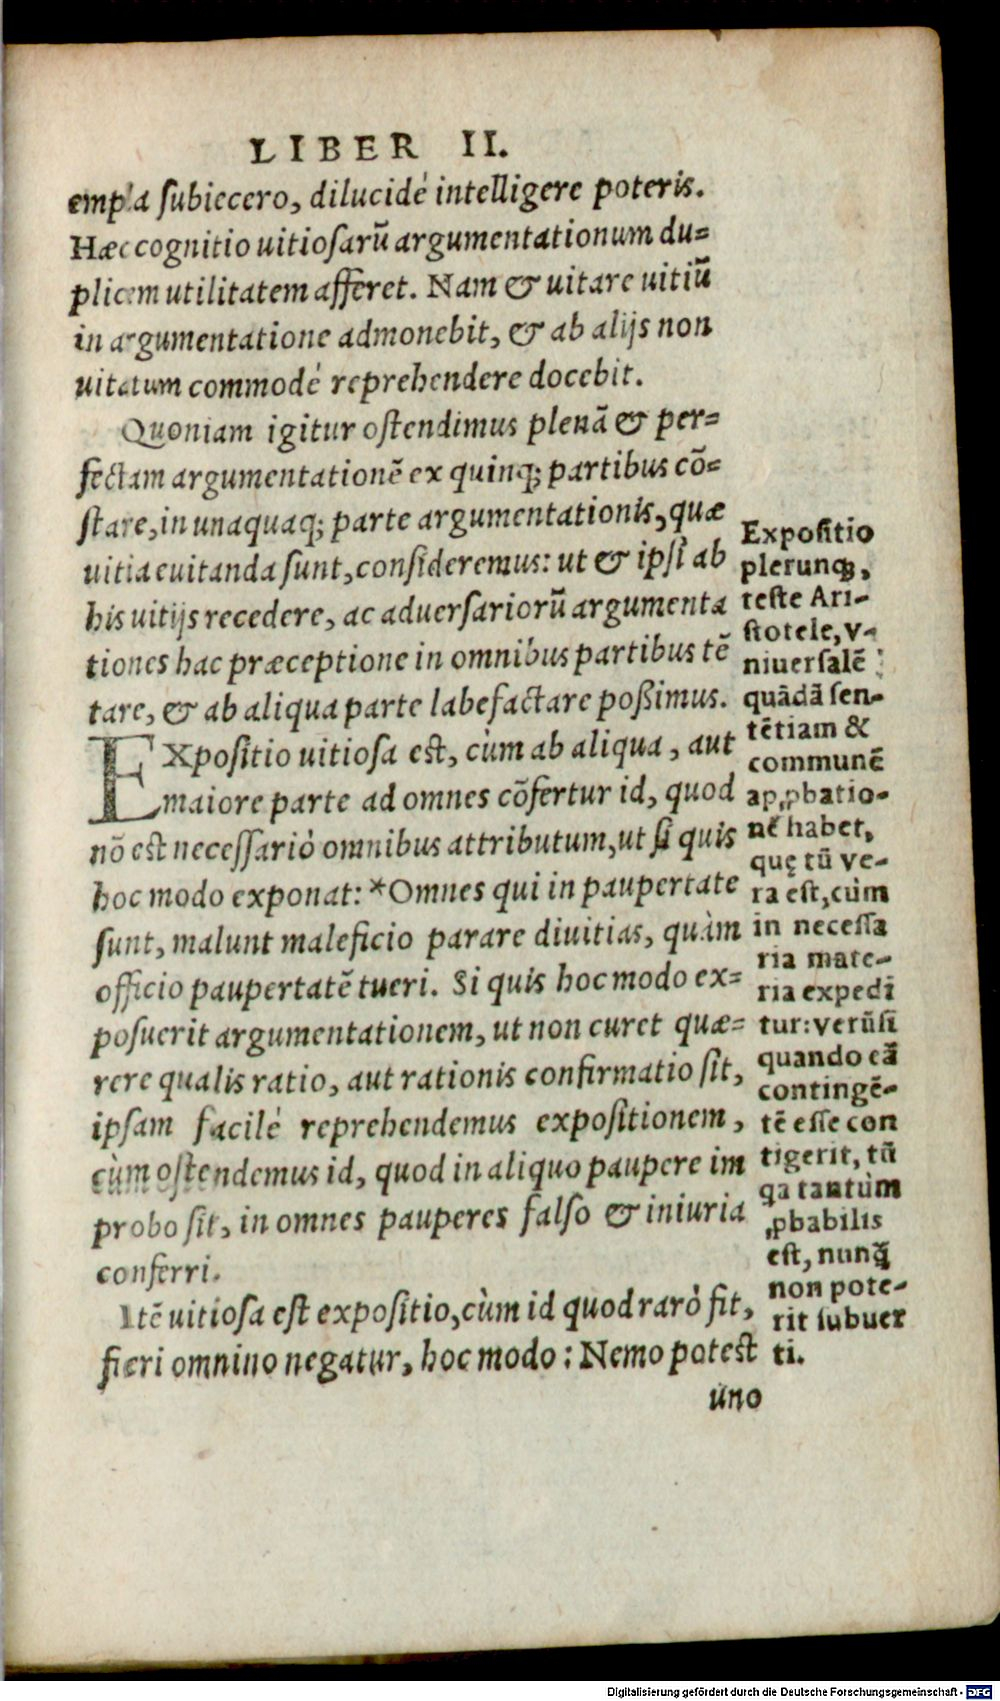 LIBER II.
empla subiecero, dilucidè intelligere poteris.
Hæc cognitio uitiosarũ argumentationum du=
plicem utilitatem afferet. Nam & uitare uitiũ
in argumentatione admonebit, & ab alijs non
uitatum commodè reprehendere docebit.
Quoniam igitur ostendimus plenã & per=
fectam argumentationẽ ex quinq; partibus cõ=
stare, in unaquaq; parte argumentationis, quæ
uitia euitanda sunt, consideremus: ut & ipsi ab
his uitijs recedere, ac aduersariorũ argumenta
tiones hac præceptione in omnibus partibus tẽ
tare, & ab aliqua parte labefactare poßimus.
EXpositio uitiosa est, cùm ab aliqua, aut
maiore parte ad omnes cõfertur id, quod
nõ est necessariò omnibus attributum, ut si quis
hoc modo exponat: *Omnes qui in paupertate
sunt, malunt maleficio parare diuitias, quàm
officio paupertatẽ tueri. Si quis hoc modo ex=
posuerit argumentationem, ut non curet quæ=
rere qualis ratio, aut rationis confirmatio sit,
ipsam facilè reprehendemus expositionem,
cùm ostendemus id, quod in aliquo paupere im
probo sit, in omnes pauperes falso & iniuria
conferri.
Itẽ uitiosa est expositio, cùm id quod rarò fit,
fieri omnino negatur, hoc modo: Nemo potest
uno
Expositio
plerunq;,
teste Ari-
stotele, v-
niuersalẽ
quãdã sen-
tẽtiam &
communẽ
ap ꝓbatio-
nẽ habet,
quę tũ ve-
ra est, cùm
in necessa
ria mate-
ria expedi
tur: verũ si
quando eã
contingẽ-
tẽ esse con
tigerit, tũ
qa tantùm
ꝓbabilis
est, nunq̃
non pote-
rit subuer
ti.
Digitalisierung gefördert durch die Deutsche Forschungsgemeinschaft - DFG